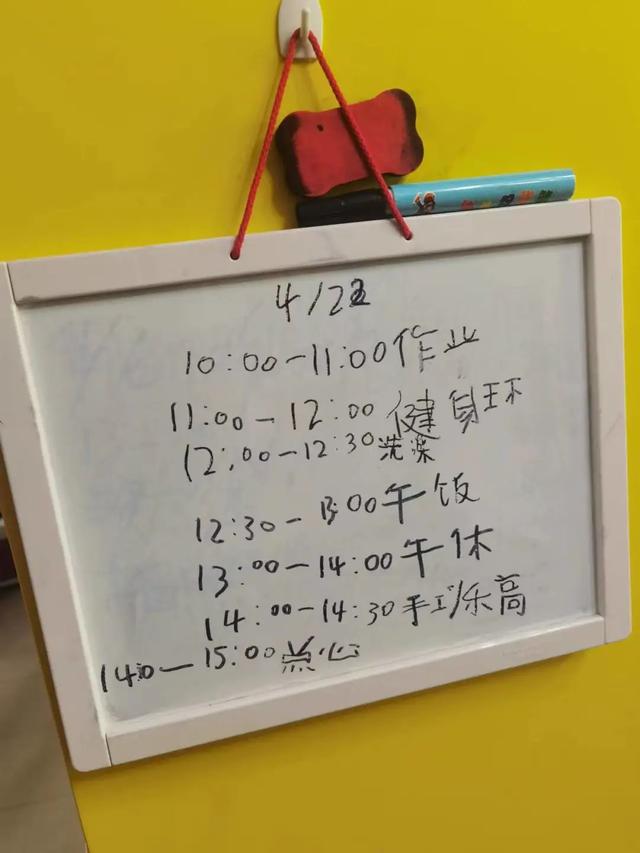 4/22
10:00-11:00作业
11:00-12:00健身环
12:00-12:30洗澡
12:30-13:00午饭
13:00-14:00午休
14:00-14:30手工/乐高
14:0-15:00点心